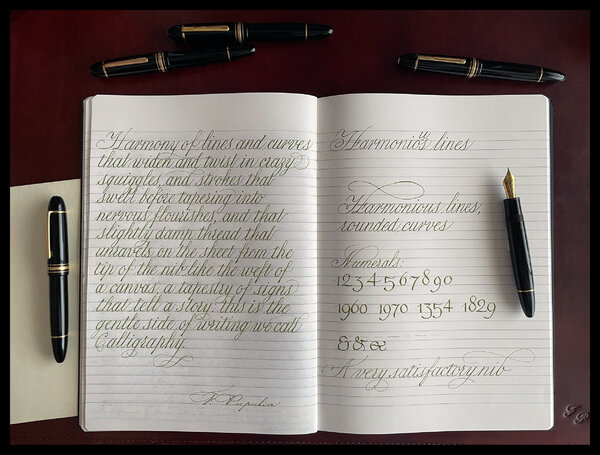 Harmony of lines and curves
that widen and twist in crazy
squiggles, and strokes that
swell before tapering into
nervous flourishes, and that
slightly damp thread that
unravels on the sheet from the
tip of the nib like the weft of
a canvas, a tapestry of signs
that tell a story: this is the
gentle side of writing we call
Calligraphy.
F. Pupulin
Harmonious lines
Harmonious lines,
rounded curves
Numerals:
1234567890
1960 1970 1354 1829
& & &
A very satisfactory nib
F P